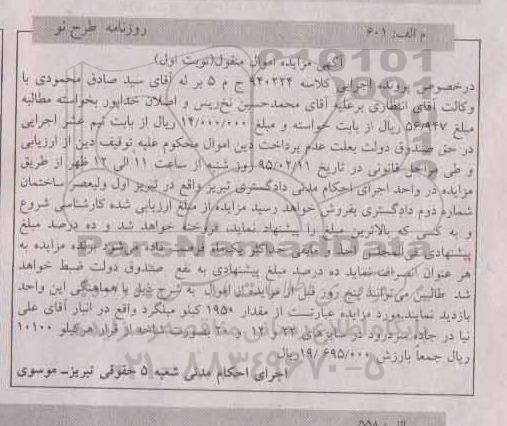 م الف: ۶۰۱
روزنامه طرح نو
آگهی مزایده اموال منقول(نوبت اول)
درخصوص پرونده اجرایی کلاسه ۹۴۰۲۲۴ ج م ۵ بر له آقای سید صادق محمودی با
وکالت آقای انتظاری برعلیه آقای محمدحسین نخ‌ریس و اصلان خداپور بخواسته مطالبه
مبلغ ۵۶/۹۴۷ ریال از بابت خواسته و مبلغ ۱۴/۰۰۰/۰۰۰ ریال از بابت نیم عشر اجرایی
در حق صندوق دولت بعلت عدم پرداخت دین اموال محکوم علیه توقیف دین از ارزیابی
و طی مراحل قانونی در تاریخ ۹۵/۰۲/۹۱ روز شنبه از ساعت ۱۱ الی ۱۲ ظهر از طریق
مزایده در واحد اجرای احکام مدنی دادگستری تبریز واقع در تبریز اول ولیعصر ساختمان
شماره دوم دادگستری بفروش خواهد رسید مزایده از مبلغ ارزیابی شده کارشناسی شروع
و به کسی که بالاترین مبلغ را پیشنهاد نماید، فروخته خواهد شد و ده درصد مبلغ
پیشنهادی فی‌المجلس اخذ و مابقی حداکثر یک‌ماه فرصت داده می‌شود برنده مزایده به
هر عنوان انصراف نماید ده درصد مبلغ پیشنهادی به نفع صندوق دولت ضبط خواهد
شد طالبین می‌توانند پنج روز قبل از مزایده از اموال به شرح ذیل با هماهنگی این واحد
بازدید نمایند.مورد مزایده عبارتست از مقدار ۱۹۵۰ کیلو میلگرد واقع در انبار آقای علی
نیا در جاده سردرود در سایزهای ۲۲ و ۱۲ و ۲۰ بصورت شاخه از قرار هرکیلو ۱۰۱۰۰
ریال جمعاً بارزش ۱۹/۶۹۵/۰۰۰ریال
اجرای احکام مدنی شعبه ۵ حقوقی تبریز- موسوی
ParsNamadData
۰۲۱-۸۸۳۴۹۶۷۰-۵